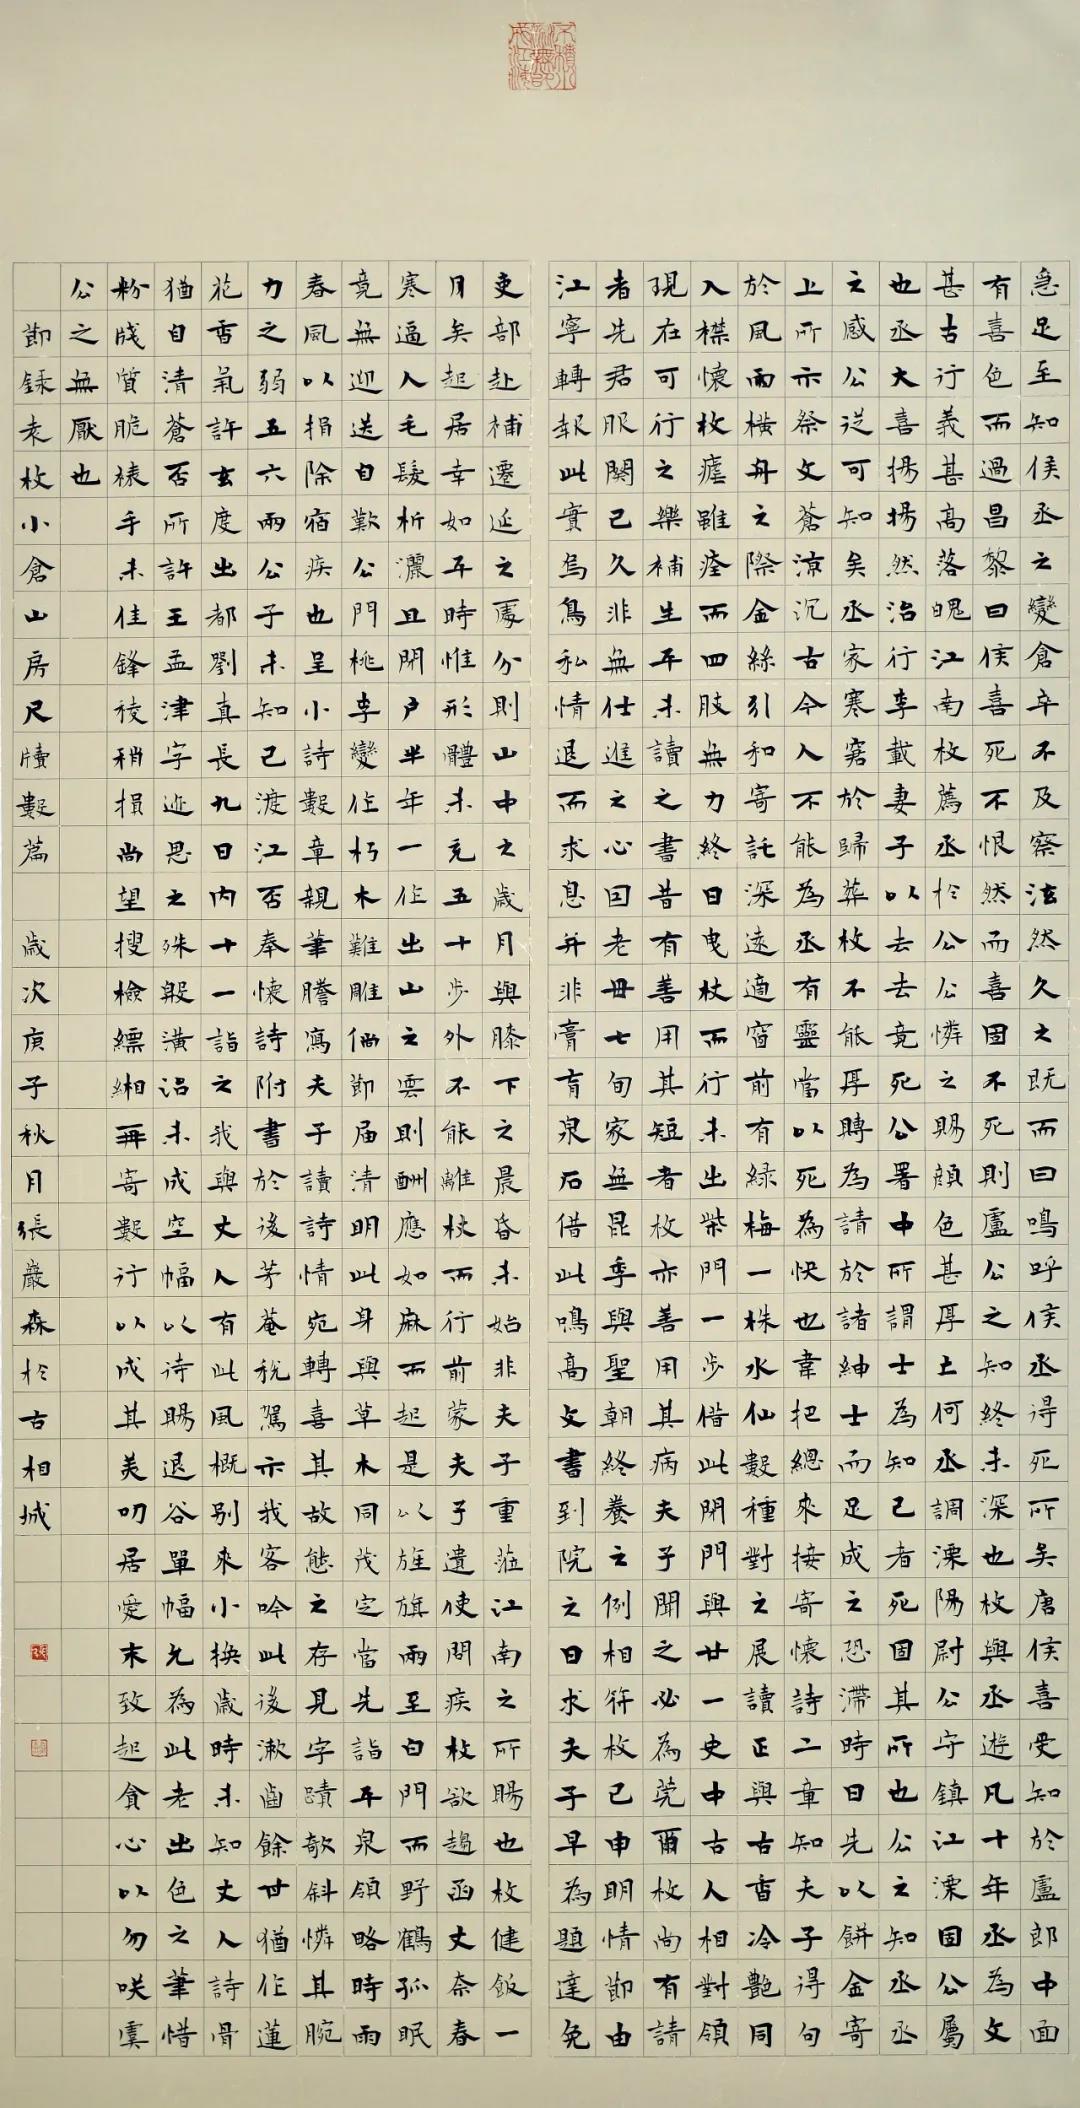 急足至知侯丞之變倉卒不及察泫然久之既而曰嗚呼侯丞得死所矣唐侯喜受知於盧郎中面
有喜色而過昌黎曰侯喜死不恨然而喜固不死則盧公之知終未深也枚與丞遊凡十年丞為文
甚古行義甚高落魄江南枚薦丞於公公憐之賜顏色甚厚土何丞調溧陽尉公守鎮江溧固公屬
也丞大喜揚揚然治行李載妻子以去去竟死公署中所謂士為知己者死固其所也公之知丞丞
之感公從可知矣丞家寒窘於歸葬枚不能厚賻為請於諸紳士而足成之恐滯時日先以餅金寄
上所亦祭文蒼涼沉古今人不能為丞有靈當以死為快也韋把總來接寄懷詩二章知夫子得句
於風雨橫舟之際金絲引和寄託深遠適窗前有綠梅一株水仙數種對之展讀正與古香冷艷同
入襟懷枚瘧雖痊而四肢無力終日曳杖而行未出柴門一步借此閉門與廿一史中古人相對領
現在可行之樂補生平未讀之書昔有善用其短者枚亦善用其病夫子聞之必為莞爾枚尚有請
者先君服闋已久非無仕進之心因老毋七旬家無昆季與聖朝終養之例相符枚已申明情節由
江寧轉報此實烏鳥私情退而求息并非膏肓泉石借此鳴高文書到院之日求夫子早為題達免
吏部赴補遷延之處分則山中之歲月與膝下之晨昏未始非夫子重蒞江南之所賜也枚健飯一
月矣起居幸如平時惟形體未充五十步外不能離杖而行前蒙夫子遺使問疾枚欲趨函丈奈春
寒逼人毛髮析灑且閉户半年一作出山之雲則酬應如麻而起是以旌旗雨至白門而野鶴孤眠
竟無迎送自歎公門桃李變作朽木難雕倘節屆清明此身與草木同茂定當先詣平泉領略時雨
春風以捐除宿疾也呈小詩數章親筆謄寫夫子讀詩情宛轉喜其故態之存見字蹟欹斜憐其腕
力之弱五六兩公子未知已渡江否奉懷詩附書於後芳菴稅駕亦我客吟此後漱齒餘甘猶作蓮
花香氣許玄度出都劉真長九日內十一詣之我與丈人有此風概别來小換歲時未知丈人詩骨
猶自清蒼否所許王孟津字迹思之殊殷潢治未成空幅以待賜退谷單幅允為此老出色之筆惜
粉牋質脆裱手未佳鋒稜稍損尚望搜檢縹緗再寄數行以成其美叨居愛末致起貪心以勿咲虞
公之無厭也
節錄袁枚小倉山房尺牘數篇 歲次庚子秋月張巖森於古相城